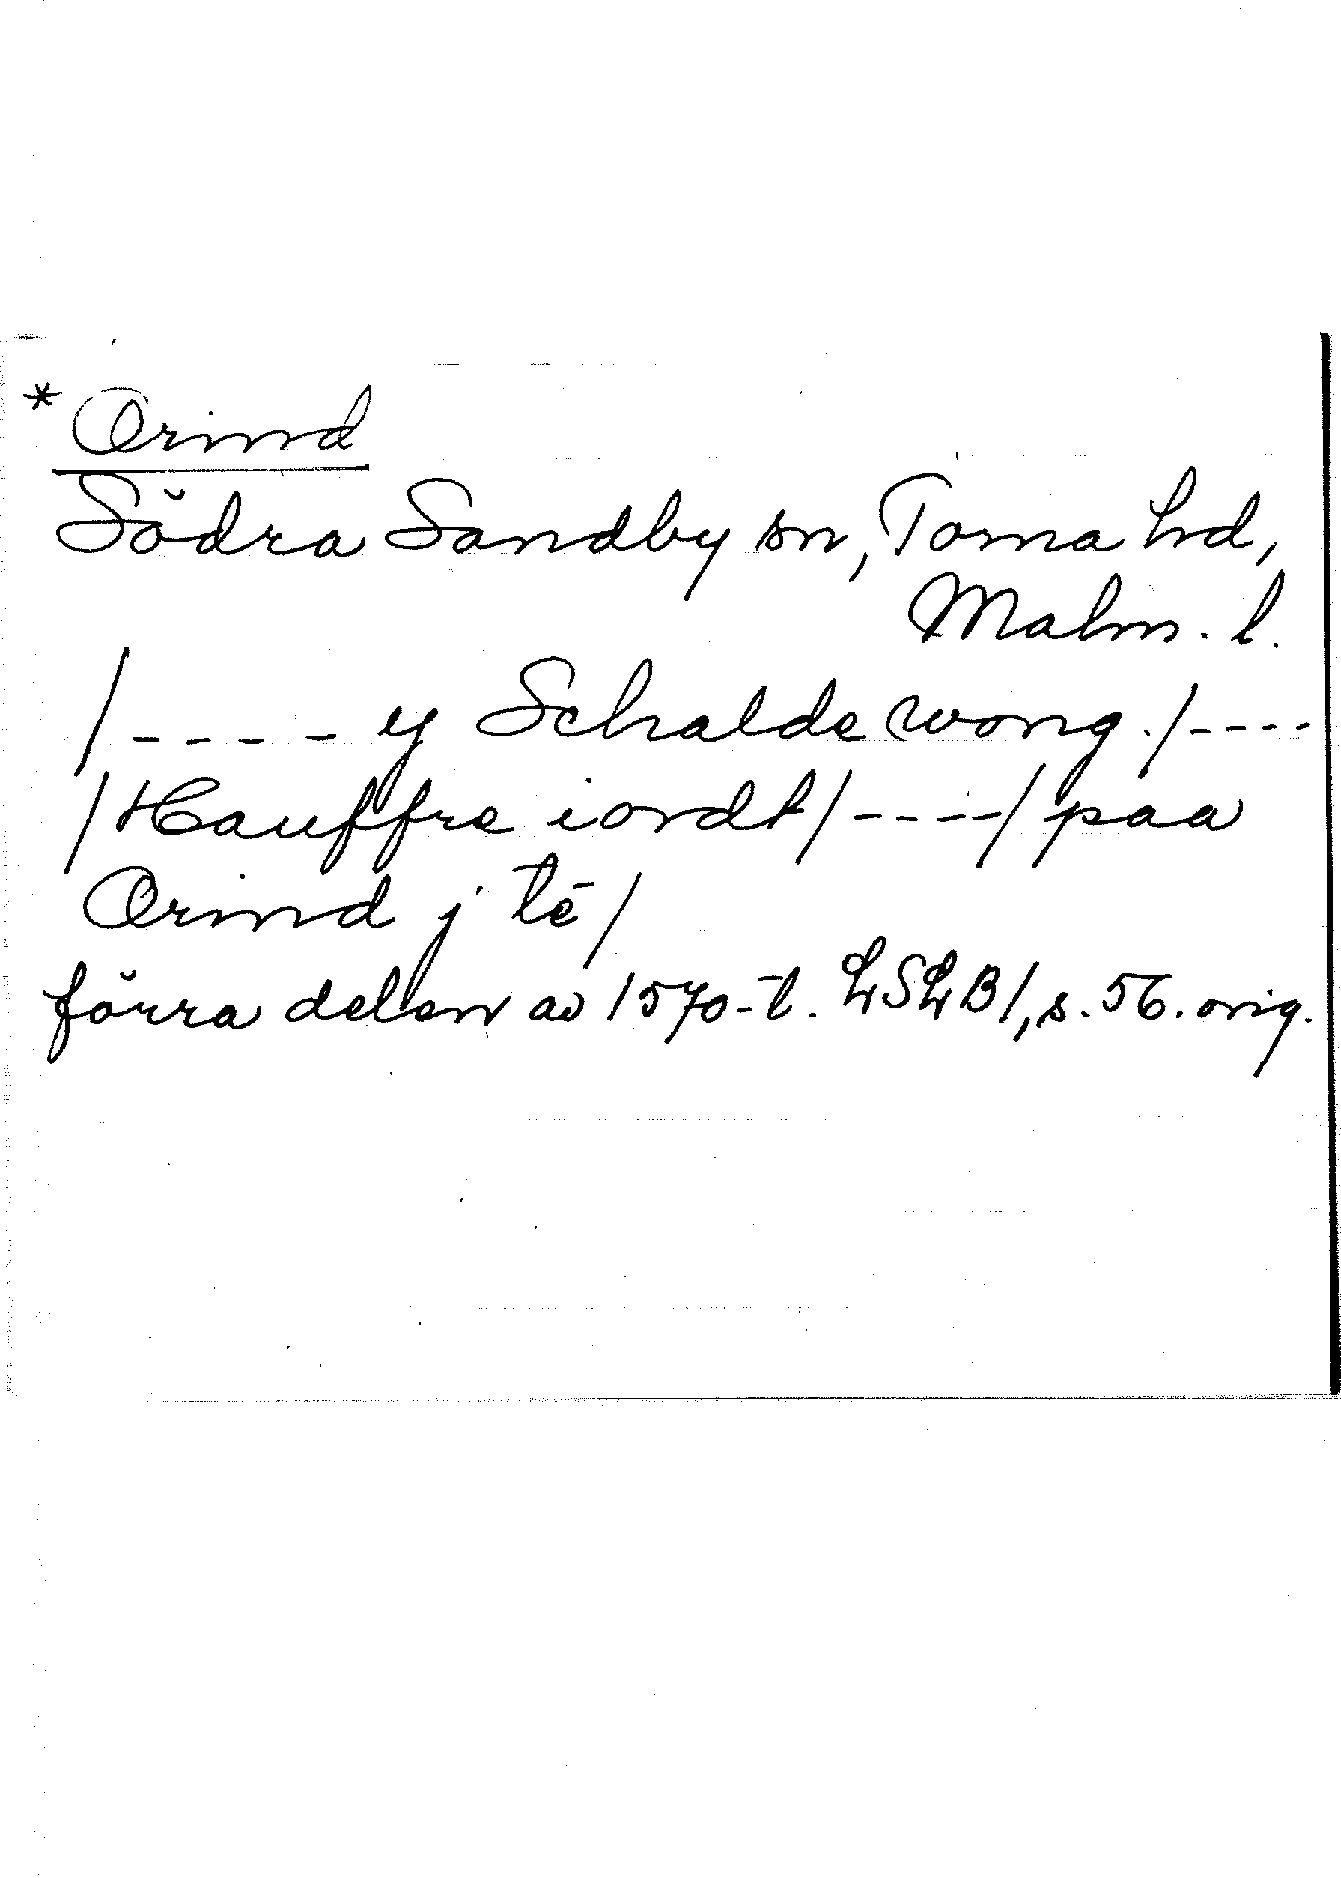 * Orind
Södra Sandby sn, Torna hd,
Malm. l.
/ - - - - - y Schalde wong ./ - - - -
/ Hauffre iordt / - - - - / paa
Orind j tē /
förra delen av 1570-t. LSLB1, s. 56. orig.